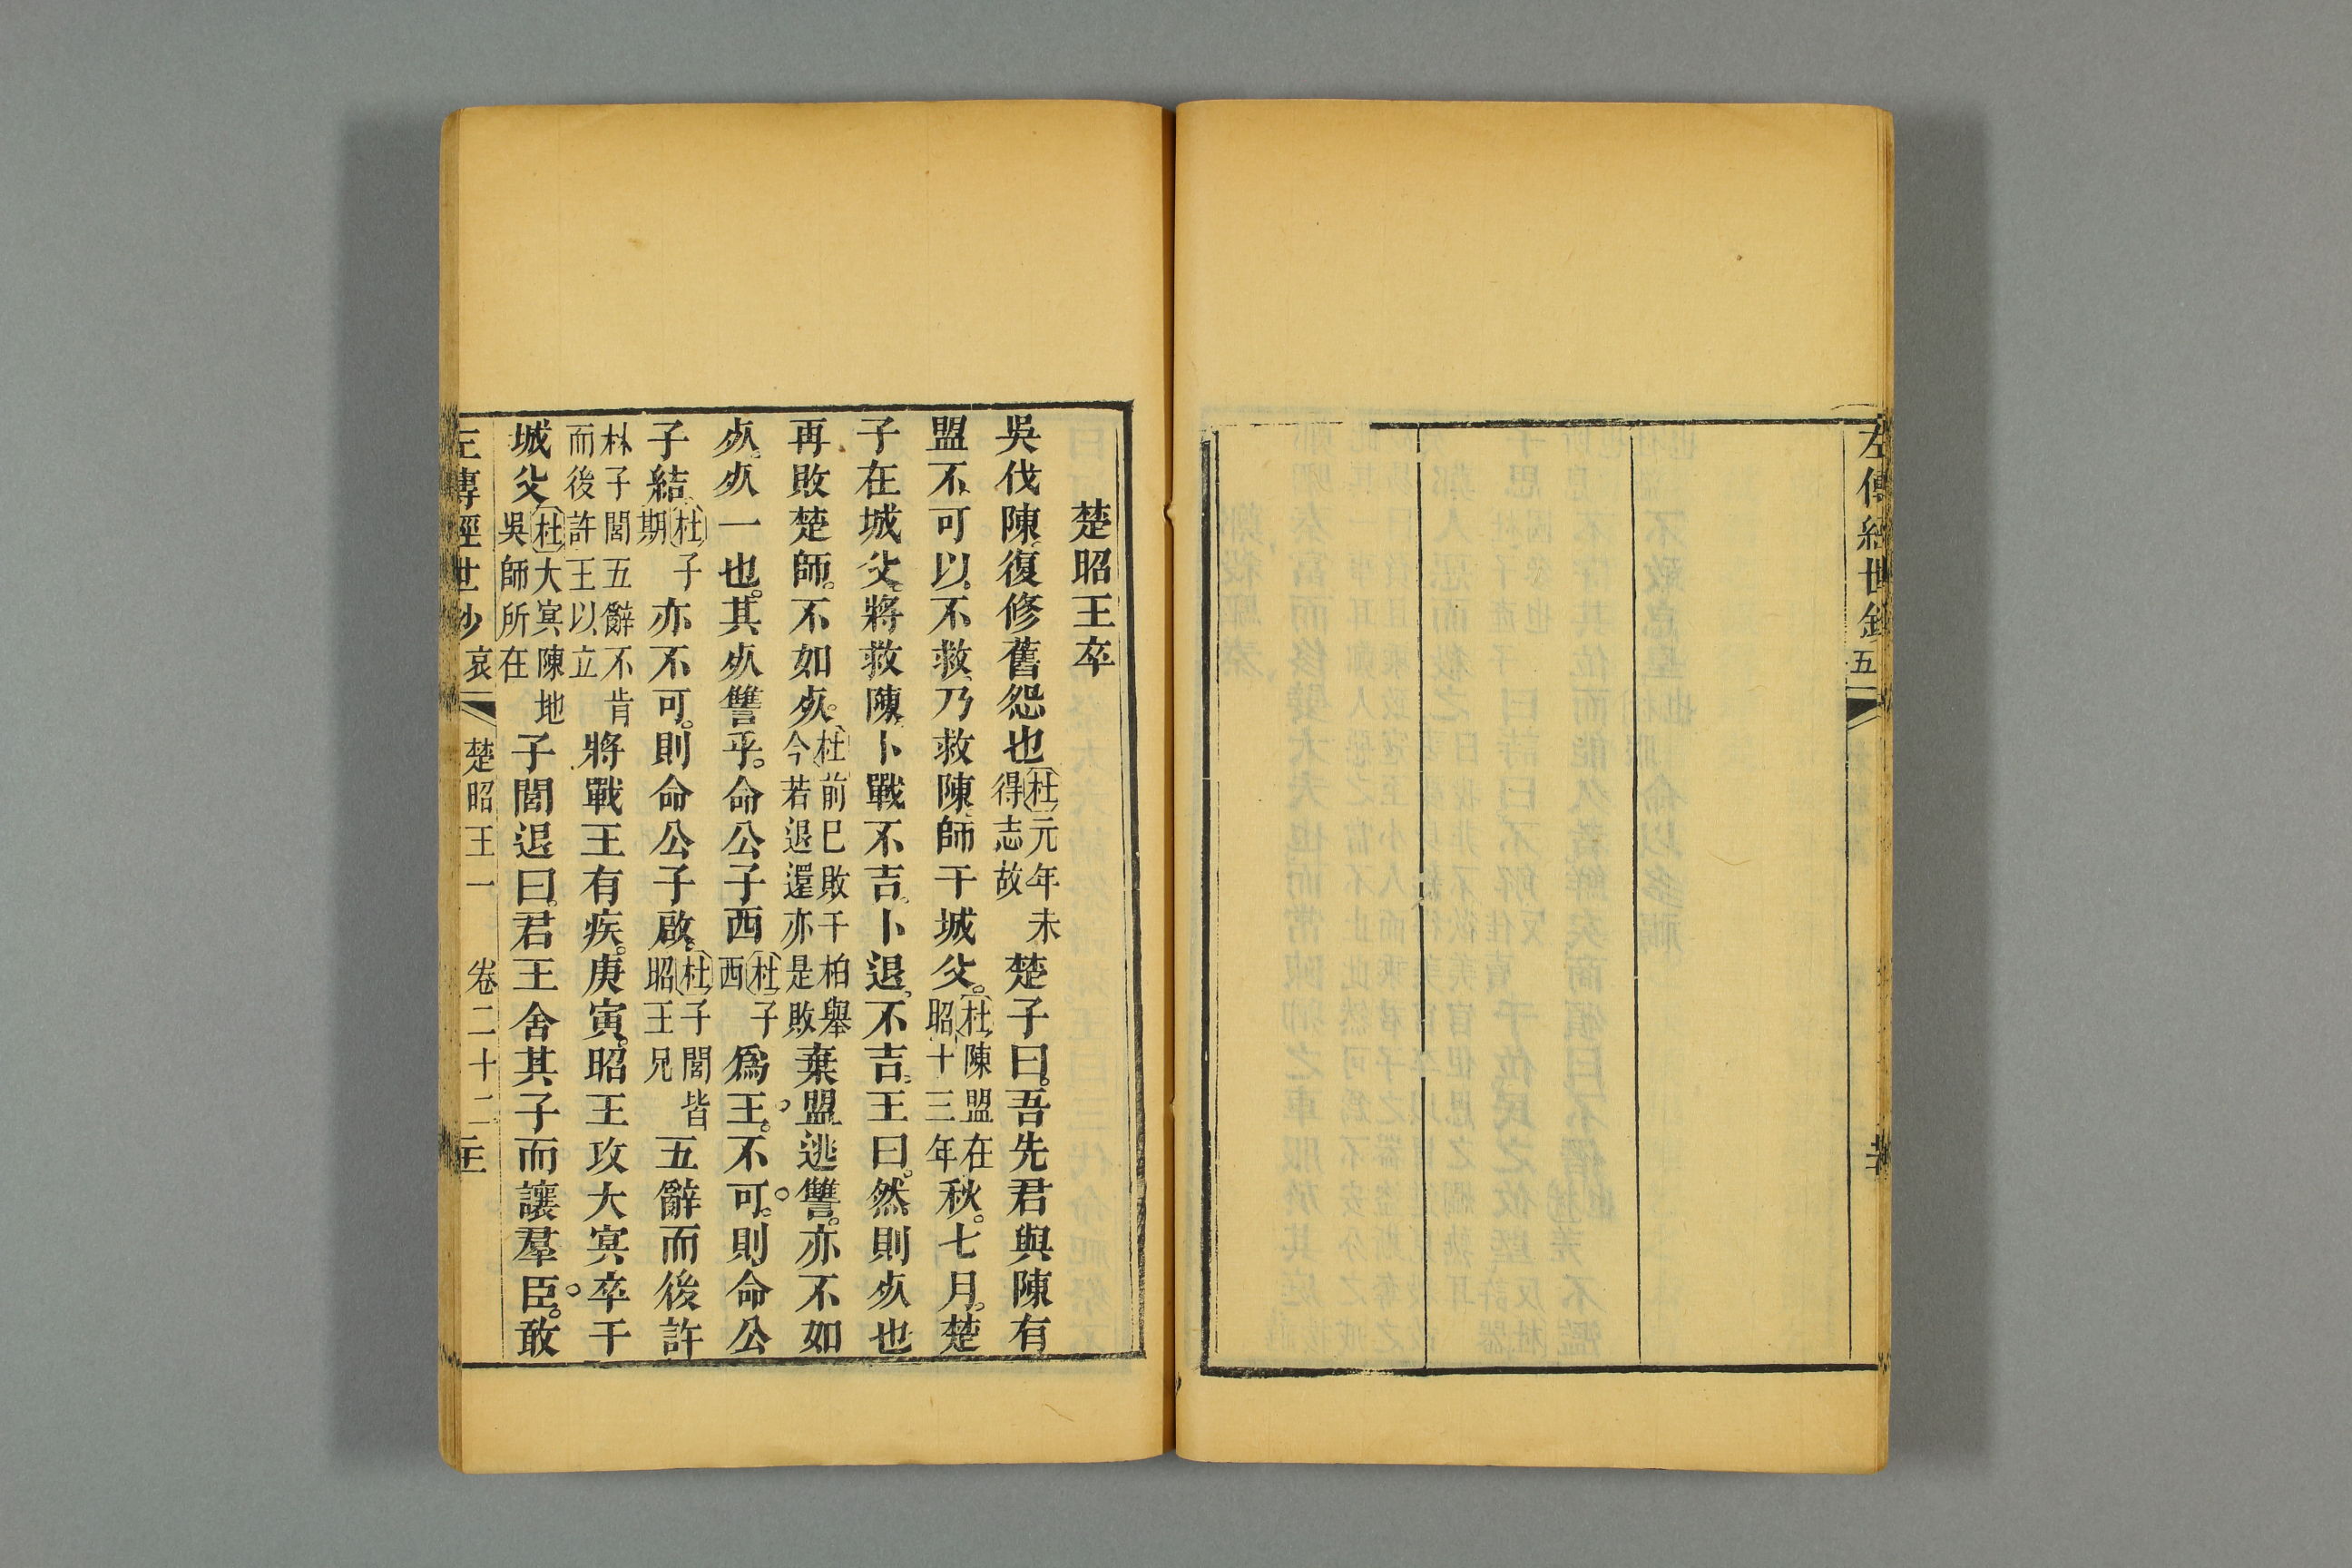 左傳經世鈔 五
楚昭王卒
吳伐陳復修舊怨也杜元年未得志故楚子曰吾先君與陳有
盟不可以不救乃救陳師于城父杜陳盟在昭十三年秋七月楚
子在城父將救陳卜戰不吉卜退不吉王曰然則㱙也
再敗楚師不如㱙杜前巳敗于柏舉今若退還亦是敗棄盟逃讐亦不如
㱙㱙一也其㱙讐乎命公子西杜子西爲王不可則命公
子結杜子期亦不可則命公子啟杜子閭皆昭王兄五辭而後許
林子閭五辭不肯而後許王以立將戰王有疾庚寅昭王攻大冥卒于
城父杜大冥陳地吳師所在子閭退曰君王舍其子而讓羣臣敢
左傳經世鈔 哀 楚昭王一 卷二十二